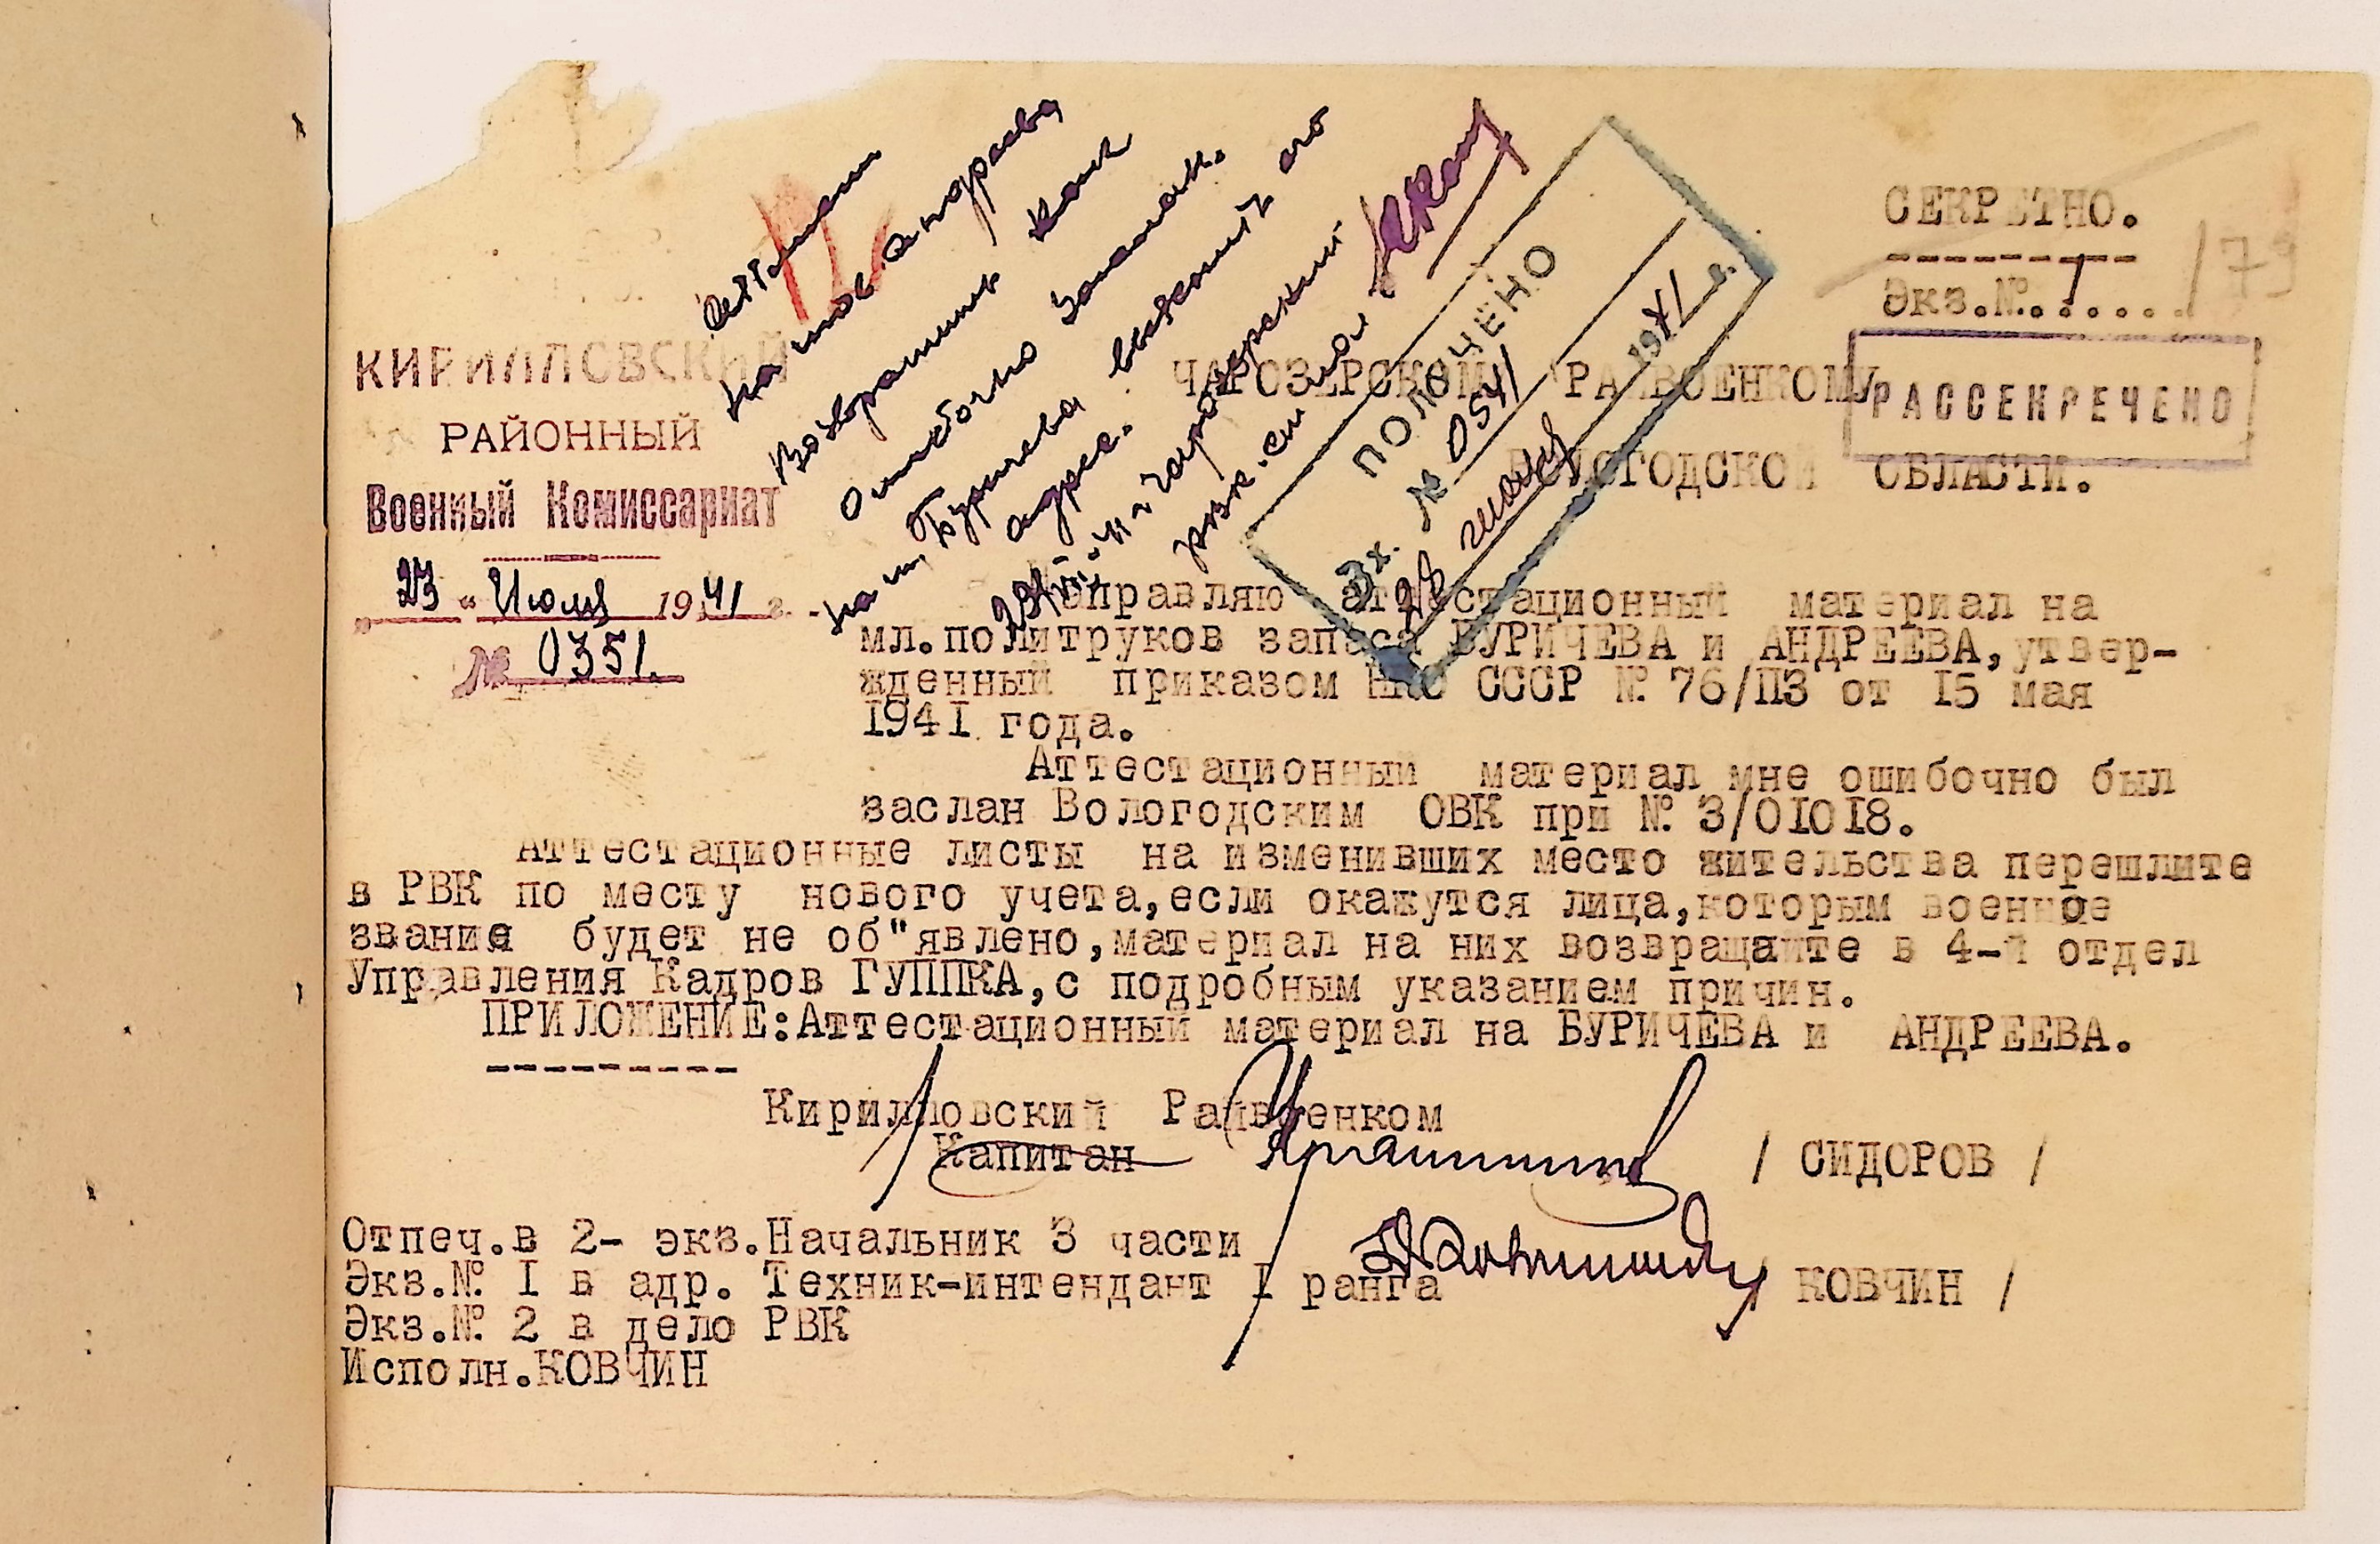 СЕКРЕТНО.
Экз.№ 1
/79
РАССЕКРЕЧЕНО
КИРИЛЛОВСКИЙ
РАЙОННЫЙ
Военный Комиссариат
"23" Июля 1941 г.
№ 0351.
на тов. Андреева
Возвратить как
ошибочно заслан.
на т. Буричева выяснить его
адрес.
ПОЛУЧЕНО
Вх. № 0541
28 июля 1941 г.
ЧАРОЗЕРСКОМУ РАЙВОЕНКОМУ
ВОЛОГОДСКОЙ ОБЛАСТИ.
Направляю аттестационный материал на
мл.политруков запаса БУРИЧЕВА и АНДРЕЕВА,утвер-
жденный приказом НКО СССР № 76/ПЗ от 15 мая
1941 года.
Аттестационный материал мне ошибочно был
заслан Вологодским ОВК при № 3/01018.
Аттестационные листы на изменивших место жительства перешлите
в РВК по месту нового учета,если окажутся лица,которым военное
звание будет не об"явлено,материал на них возвращайте в 4-й отдел
Управления Кадров ГУППКА,с подробным указанием причин.
ПРИЛОЖЕНИЕ:Аттестационный материал на БУРИЧЕВА и АНДРЕЕВА.
Кирилловский Райвоенком
Капитан / СИДОРОВ /
Отпеч.в 2- экз.Начальник 3 части
Экз.№ 1 в адр. Техник-интендант 1 ранга / КОВЧИН /
Экз.№ 2 в дело РВК
Исполн.КОВЧИН